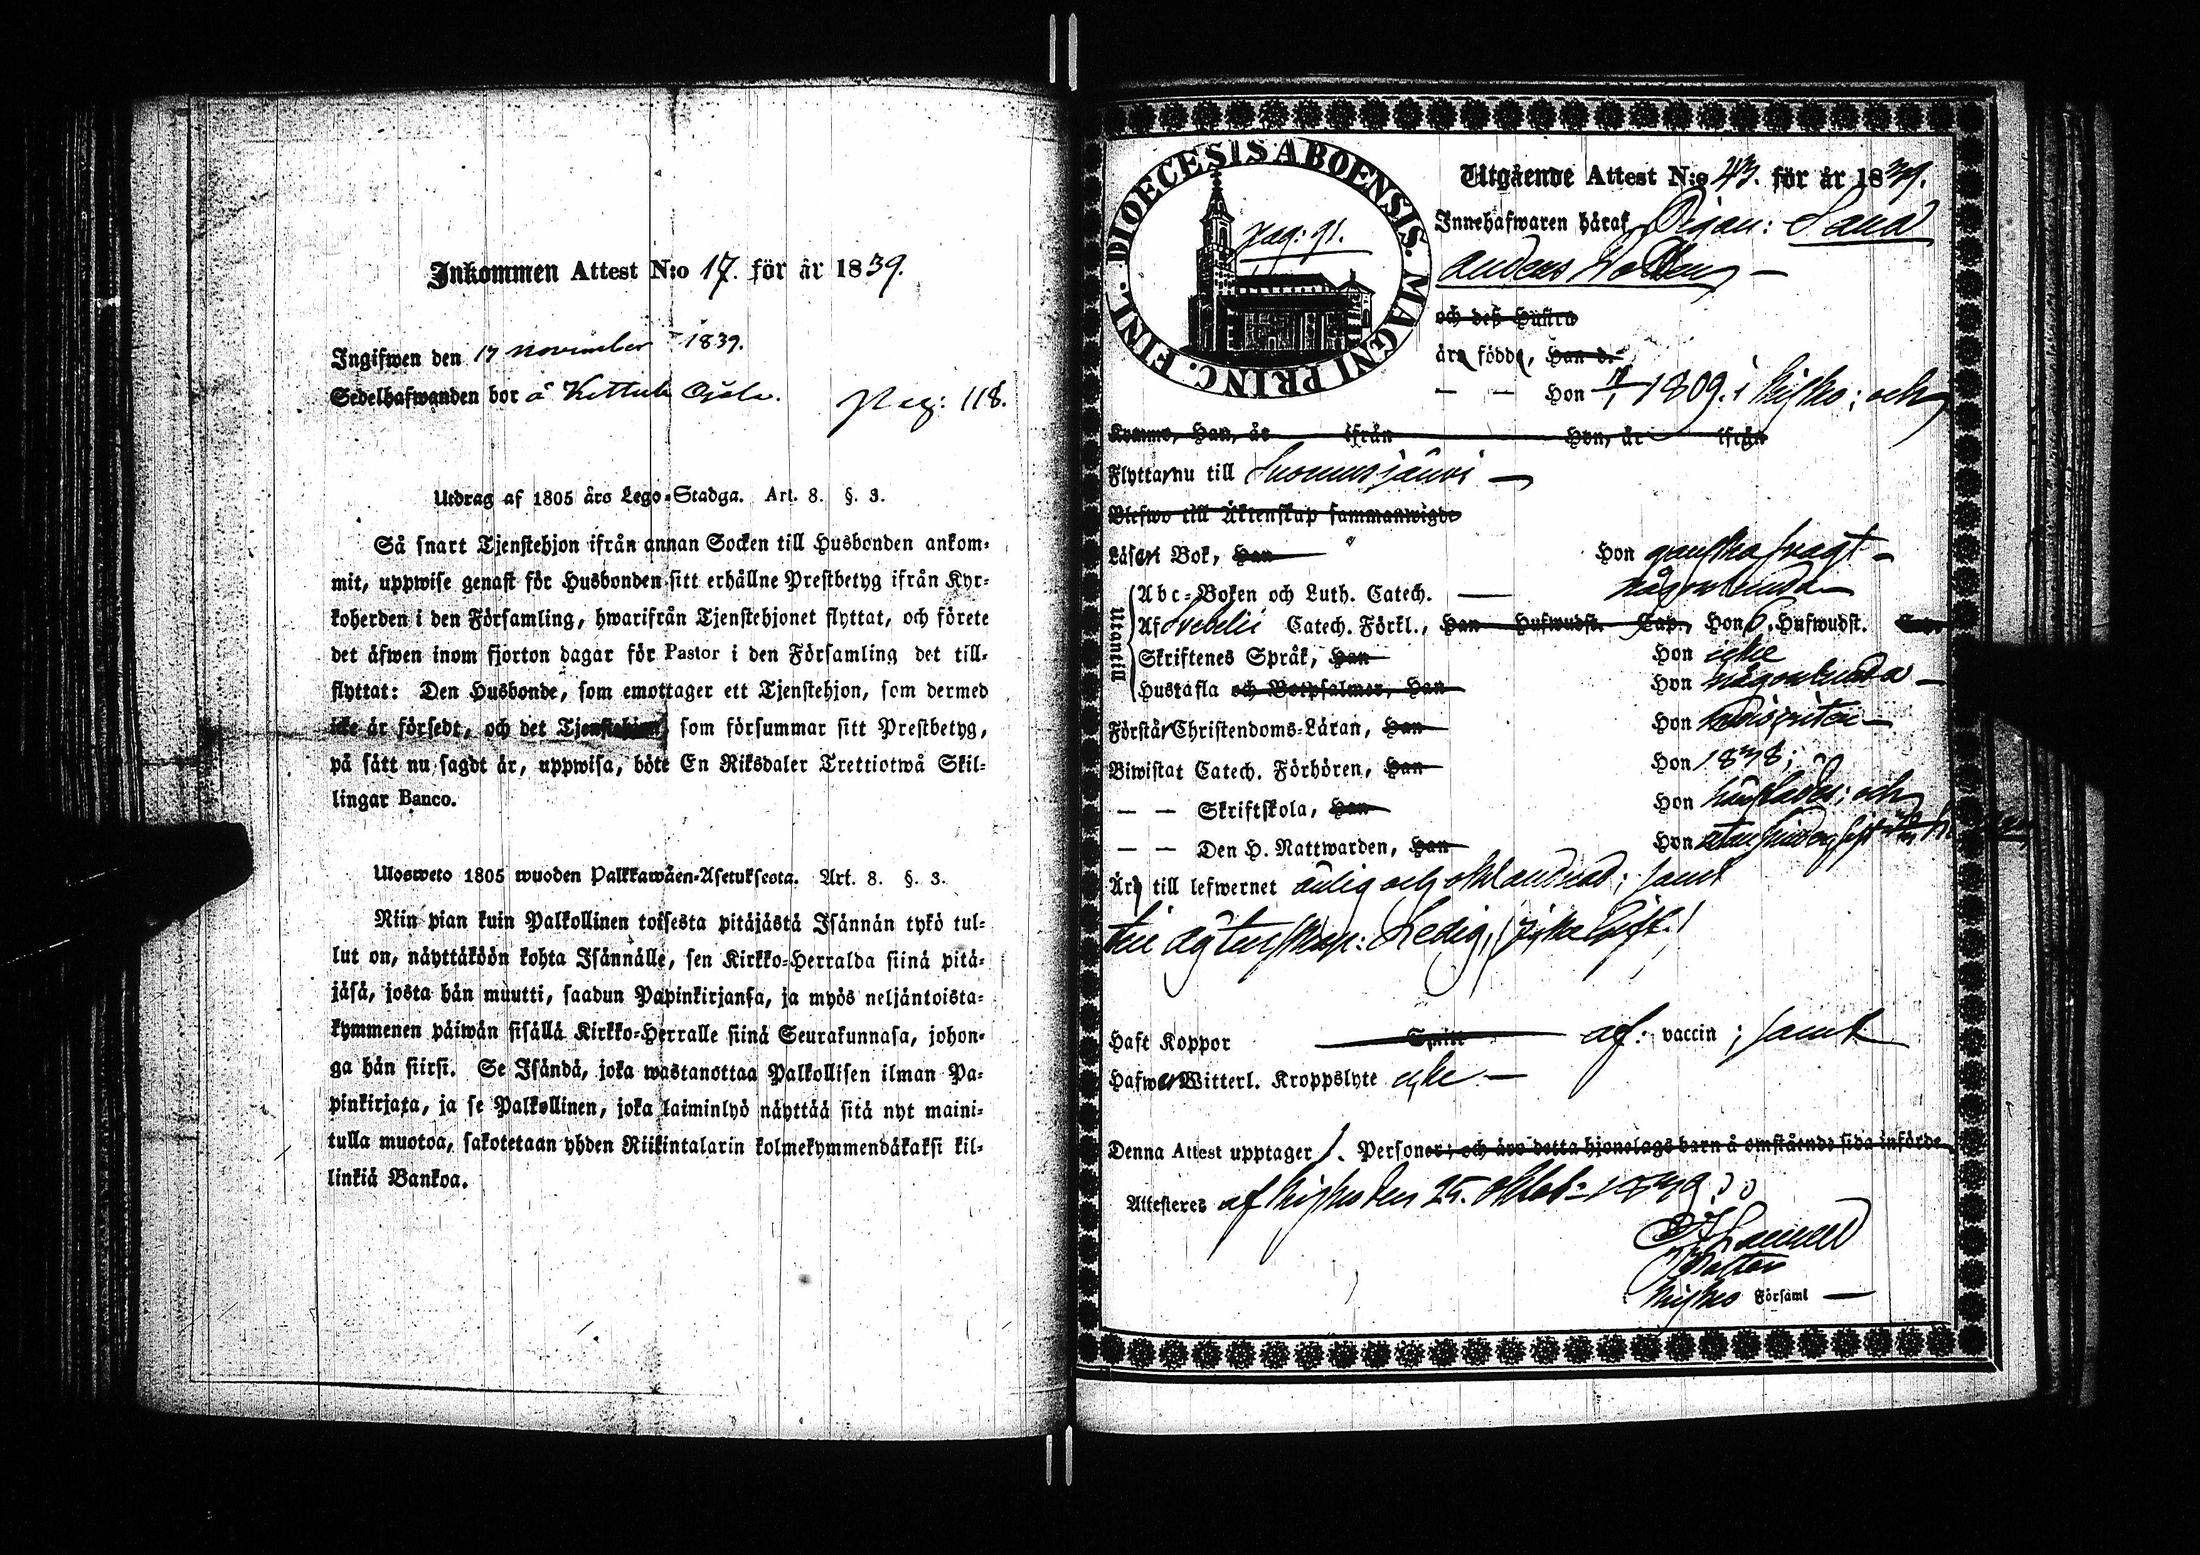 Inkommen Attest N:o 17. för år 1839.
Ingifwen den 17 november 1839.
Sedelhafwanden bor å Kettula
Pag: 118.
Utdrag af 1805 års Lego-Stadga. Art. 8. §. 3.
Så snart Tjenstehjon ifrån annan Socken till Husbonden ankom-
mit, uppwise genast för Husbonden sitt erhållne Prestbetyg ifrån Kyr-
koherden i den Församling, hwarifrån Tjenstehjonet flyttat, och förete
det äfwen inom fjorton dagar för Pastor i den Församling det till-
flyttat: Den Husbonde, som emottager ett Tjenstehjon, som dermed
icke är försedt, och det Tjenstehjon, som försummar sitt Prestbetyg,
på sätt nu sagdt är, uppwisa, böte En Riksdaler Trettiotwå Skil-
lingar Banco.
Ulosweto 1805 wuoden Palkkawäen-Asetuksesta. Art. 8. §. 3.
Niin pian kuin Palkollinen toisesta pitäjästä Isännän tykö tul-
lut on, näyttäköön kohta Isännälle, sen Kirkko-Herralda siinä pitä-
jäsä, josta hän muutti, saadun Papinkirjansa, ja myös neljäntoista-
kymmenen päiwän sisällä Kirkko-Herralle siinä Seurakunnasa, johon-
ga hän siirsi. Se Isändä, joka wastanottaa Palkollisen ilman Pa-
pinkirjata, ja se Palkollinen, joka laiminlyö näyttää sitä nyt maini-
tulla muotoa, sakotetaan yhden Riikintalarin kolmekymmendäkaksi kil-
linkiä Bankoa.
DIOECESIS ABOENSIS. MAGNI PRINC. FINL.
pag: 91.
Utgående Attest N:o 43. för år 1839.
Innehafwaren häraf, Pigan:
Anders
och deß Hustru
äro födde, Han d.
— — Hon 1809. i Kisko; och
Kommo, Han, år ifrån Hon, år ifrån
Flytta nu till Suomusjärvi —
Blefwo till Äktenskap sammanwigde
Läser i Bok, Han — Hon ganska swagt —
Utantill
Abc-Boken och Luth. Catech. — någorlunda
Af Svebelii Catech. Förkl., Han Hufwudst. Cap., Hon 6. Hufwudst. Cap.
Skriftenes Språk, Han Hon icke
Hustafla och Botpsalmer, Han Hon någorlunda —
Förstår Christendoms-Läran, Han Hon
Biwistat Catech. Förhören, Han Hon 1838;
— — Skriftskola, Han Hon och
— — Den H. Nattwarden, Han Hon
Är till lefwernet ärlig och oklandrad; samt
till ägtenskap: Ledig,
Haft Koppor Spitt af vaccin; samt
Hafwer Witterl. Kroppslyte icke —
Denna Attest upptager 1. Personer; och äro detta hjonelags barn å omstående sida införde.
Attesteres af Kisko den 25. Oktob: 1839.
i Kisko Församl —